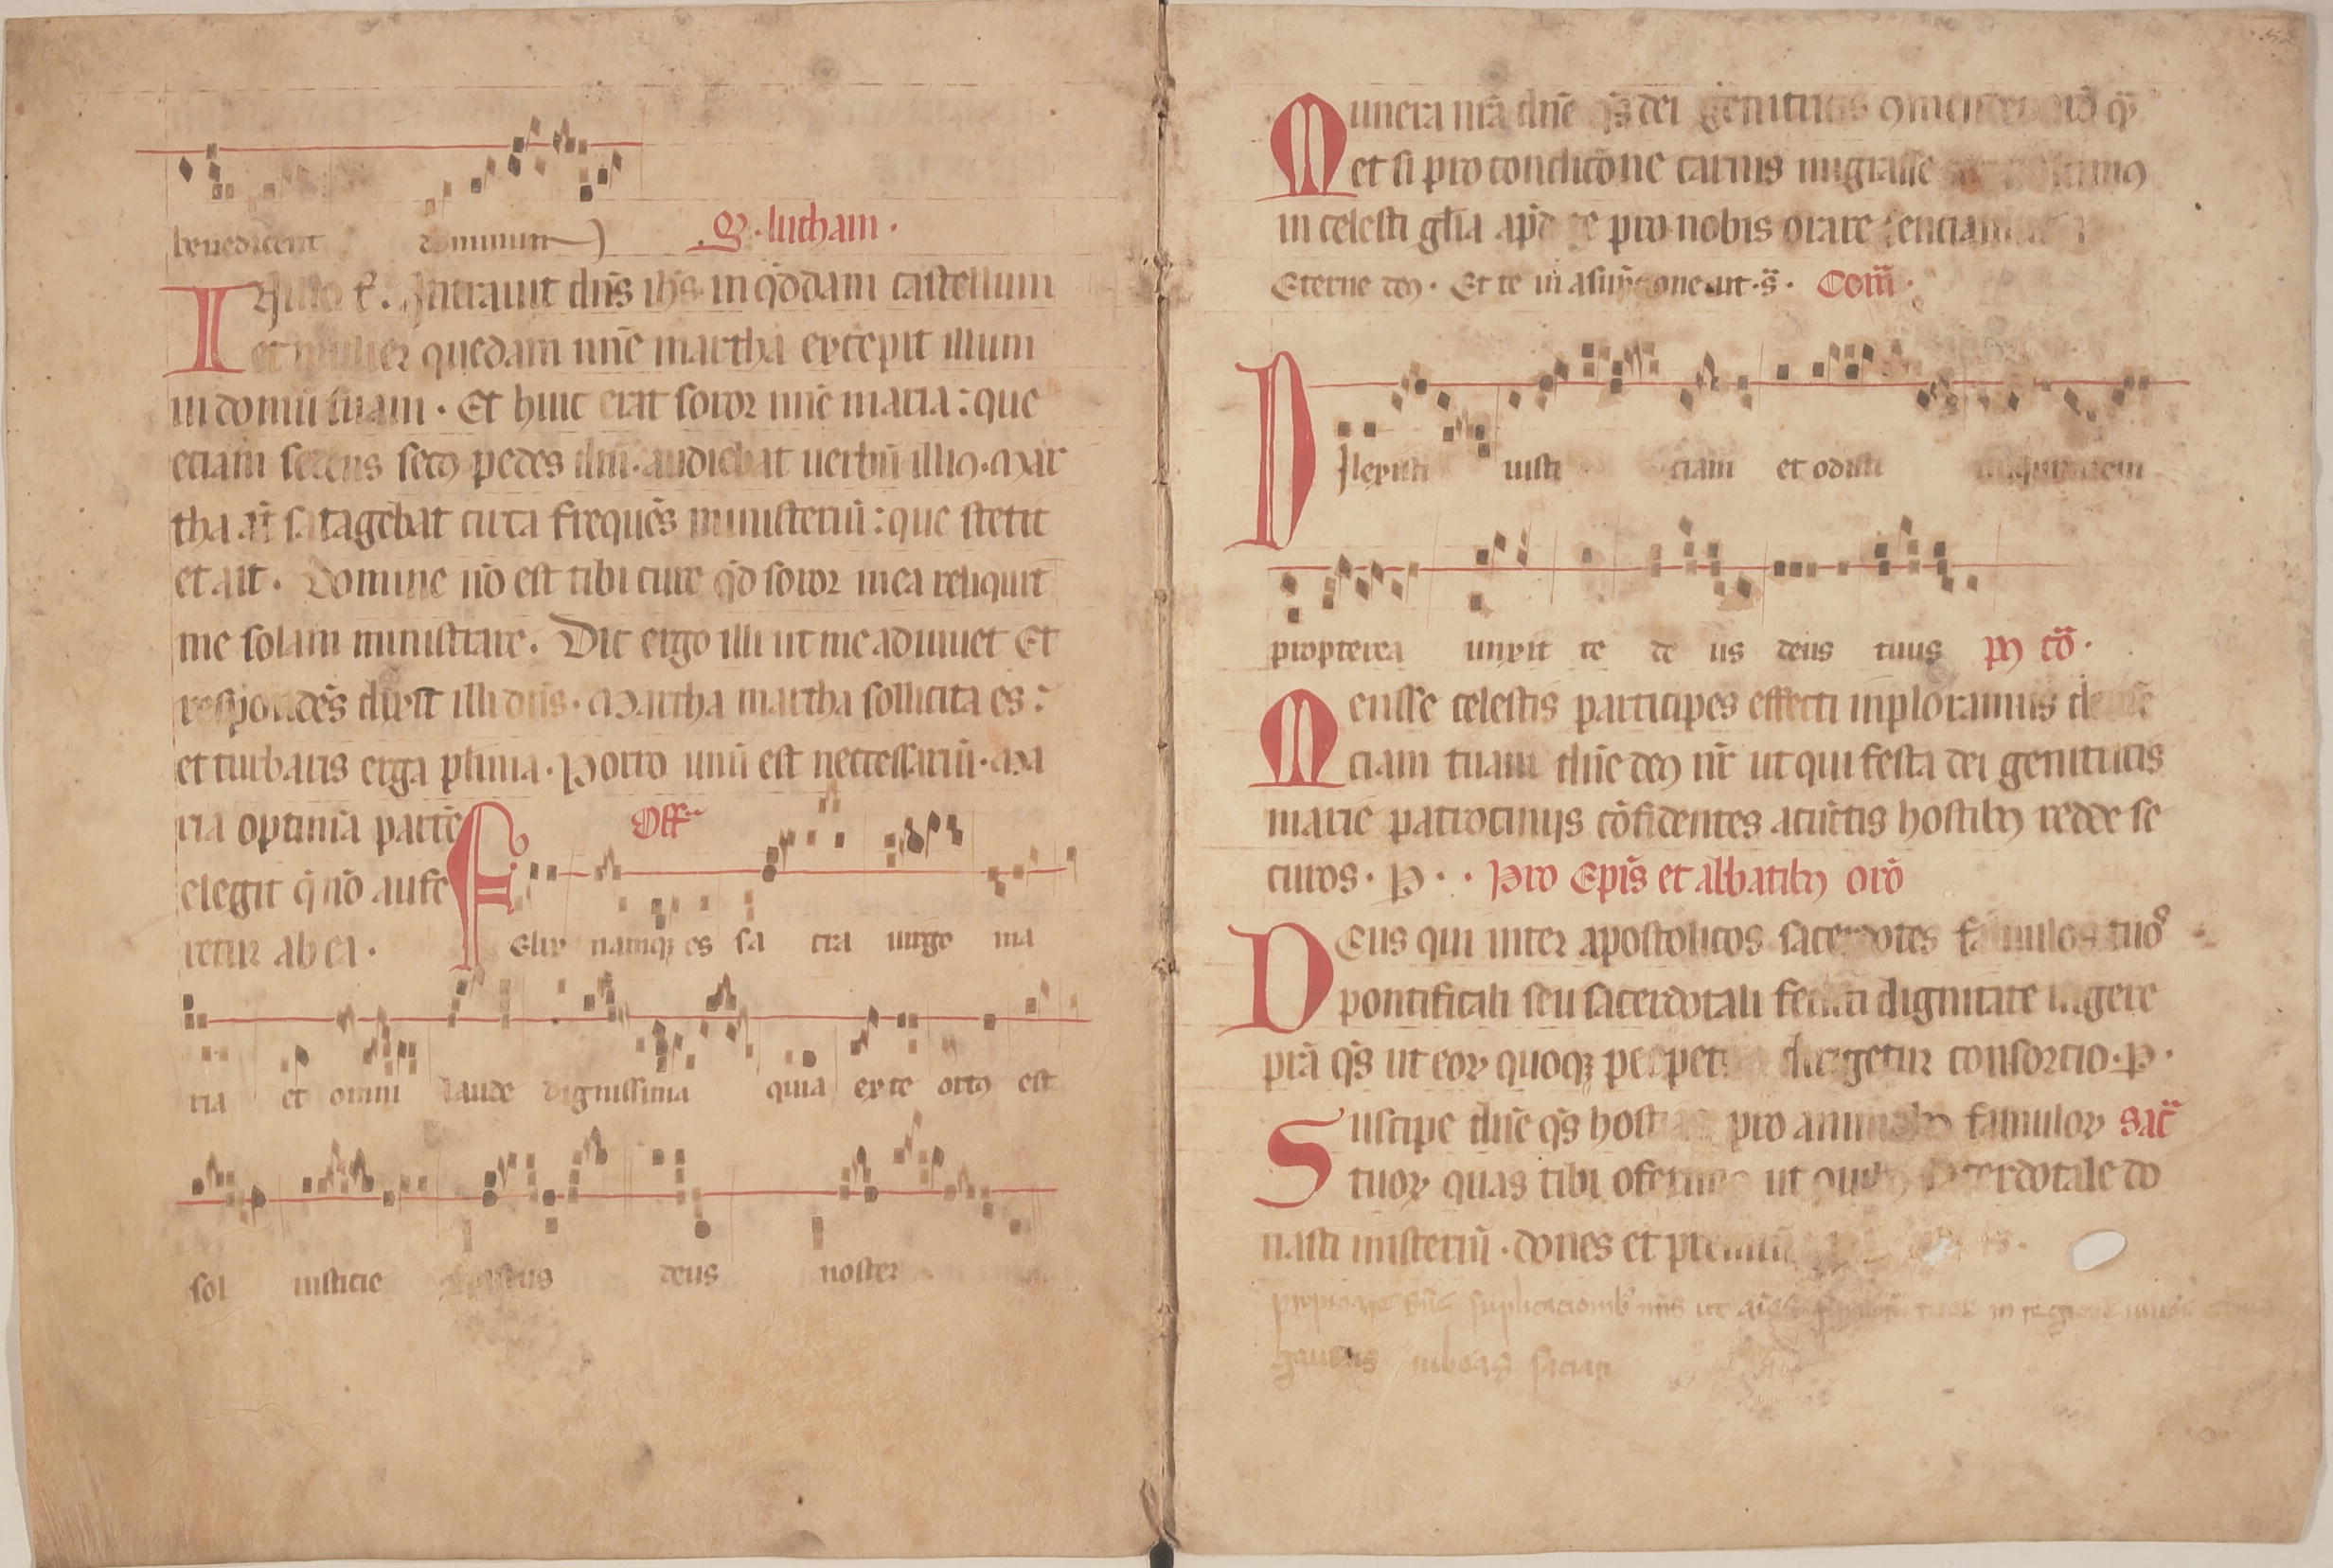 benedicent dominum S. lucham.
In illo t̃. Intrauit dñs ihs̃ in q̃ddam castellum
et mulier quedam nñe martha excepit illum
in domũ suam. Et huic erat soror nñe maria: que
etiam sedens secꝰ pedes illiꝰ audiebat uerbũ illiꝰ. Mar
tha aũt satagebat circa frequẽs ministeriũ: que stetit
et ait. Domine nõ est tibi cure qđ soror mea reliquit
me solam ministrare. Dic ergo illi ut me adiuuet Et
respondẽs dixit illi dñs. Martha martha sollicita es:
et turbaris erga plima. Porro unũ est neccessariũ. Ma
ria optimã partẽ
elegit q̃ nõ aufe
retur ab ea.
Off̃
Felix namqꝫ es sa cra uirgo ma
ria et omni laude dignissima quia ex te ortꝰ est
sol iusticie deus noster
Munera nrã dñe q̃s dei genitricis
et si pro condicõne carnis migrasse
in celesti gl̃ia apđ te pro nobis orare
Eterne deꝰ. Et te in ait. s̃. Com̃.
Dilexisti iusti ciam et odisti iniquitatem
propterea unxit te de us deus tuus pꝰ cõ.
Mensse celestis participes effecti inploramus cleme
ciam tuam dñe deꝰ nr̃ ut qui festa dei genitricis
marie patrocinijs cõfidentes acũctis hostibꝰ redde se
curos. P. . Pro Epĩs et abbatibꝰ orõ
Deus qui inter apostolicos sacerdotes famulos tuos
pontificali seu sacerdotali fecisti dignitate uigere
prã q̃s ut eoꝝ quoqꝫ perpetuo consorcio. P.
Suscipe dñe q̃s hostias pro animabꝰ famuloꝝ sac̃
tuoꝝ quas tibi ut sacerdotale do
nasti misteriũ. dones et premiũ
suplicacionibꝰ nr̃is ut in regione
gaudiis iubeas